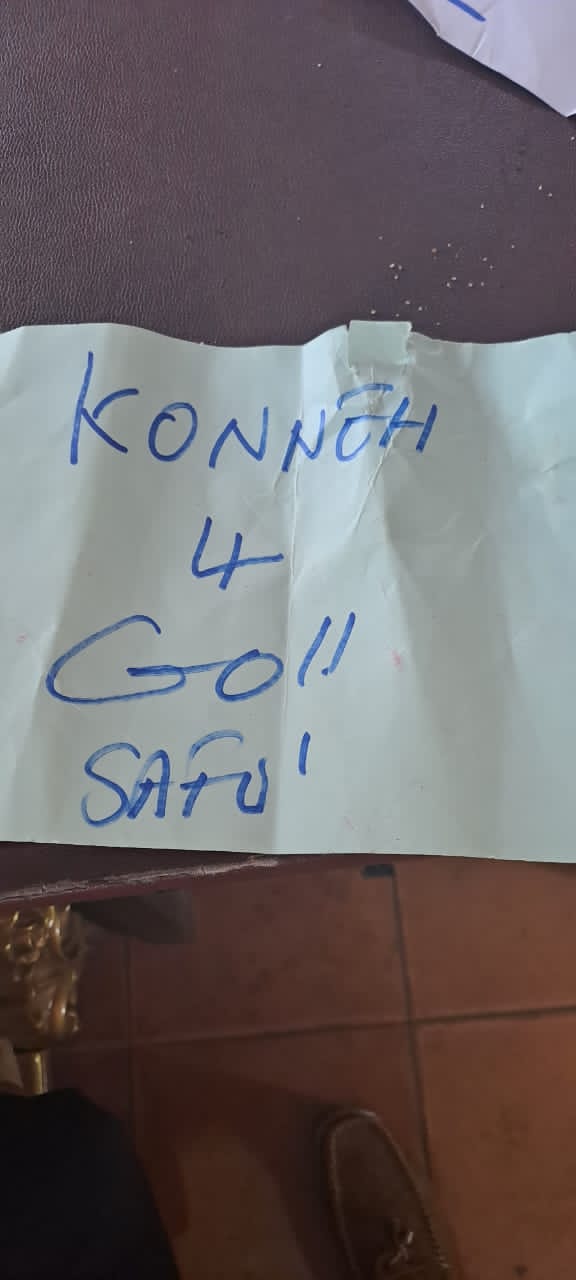 KONNEH
4
GO!!
SAFU'